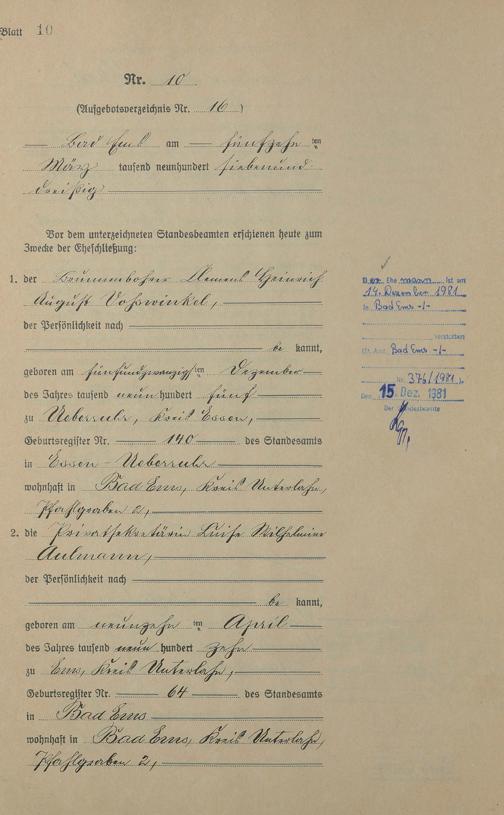 Blatt 10
Nr. 10
(Aufgebotsverzeichnis Nr. 16)
Bad Ems am fünfzehn ten
März tausend neunhundert siebenund
dreißig
Vor dem unterzeichneten Standesbeamten erschienen heute zum
Zwecke der Eheschließung:
1. der Brunnenbohrer Clemens Heinrich
August Voßwinkel,
der Persönlichkeit nach
be kannt,
geboren am fünfundzwanzigsten Dezember
des Jahres tausend neun hundert fünf
zu Ueberruhr, Kreis Essen,
Geburtsregister Nr. 140 des Standesamts
in Essen-Ueberruhr
wohnhaft in Bad Ems, Kreis Unterlahn,
Pfahlgraben 2,
2. die Privatsekretärin Luise Wilhelmine
Aulmann,
der Persönlichkeit nach
be kannt,
geboren am neunzehn ten April
des Jahres tausend neun hundert zehn
zu Ems, Kreis Unterlahn,
Geburtsregister Nr. 64 des Standesamts
in Bad Ems
wohnhaft in Bad Ems, Kreis Unterlahn,
Pfahlgraben 2,
Der Ehemann ist am
14. Dezember 1981
in Bad Ems -/-
verstorben
St. Amt Bad Ems -/-
Nr. 376/1981.
Den 15. Dez. 1981
Der Standesbeamte